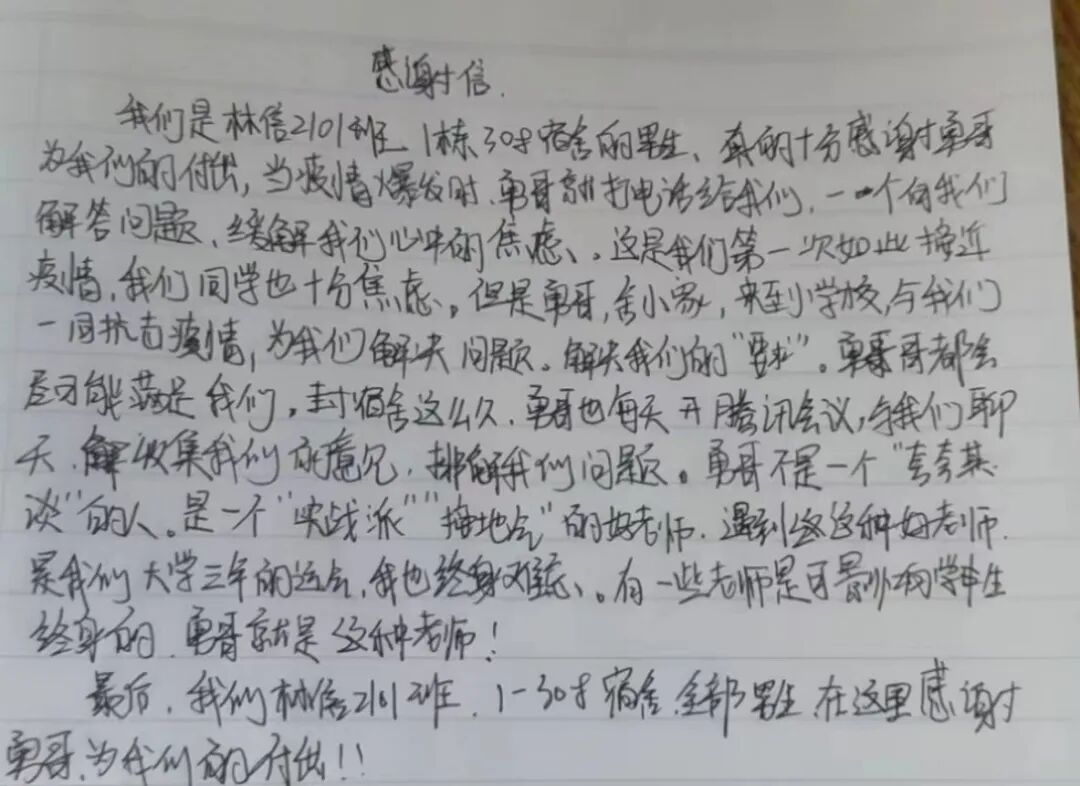 感谢信.
我们是林信2101班 1栋308宿舍的男生、真的十分感谢勇哥
为我们的付出,当疫情爆发时,勇哥就打电话给我们,一一个向我们
解答问题、缓解我们心中的焦虑、。这是我们第一次如此接近
疫情,我们同学也十分焦虑。但是勇哥,舍小家,来到小学校,与我们
一同抗击疫情,为我们解决问题。解决我们的“要求”。勇哥哥都会
尽可能满足我们。封宿舍这么久.勇哥也每天开腾讯会议,与我们聊
天、收集我们的意见,排解我们问题。勇哥不是一个“夸夸其
谈”的人。是一个“实战派”“接地气”的好老师.遇到这种好老师.
是我们大学三年的运气,我也终身难忘、。有一些老师是可影响学生
终身的.勇哥就是这种老师!
最后.我们林信2101班.1-308宿舍全部男生在这里感谢
勇哥为我们的付出!!